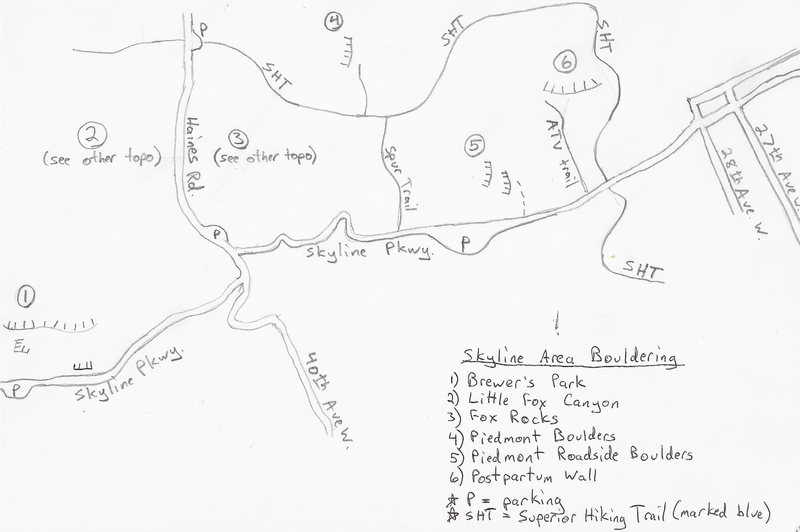 P
4
SHT
SHT
SHT
6
2
(see other topo)
Haines Rd.
3
(see other topo)
5
Spur Trail
ATV trail
27th Ave W.
28th Ave. W.
P
Skyline Pkwy.
P
SHT
1
P
Skyline Pkwy.
40th Ave W.
Skyline Area Bouldering
1) Brewer's Park
2) Little Fox Canyon
3) Fox Rocks
4) Piedmont Boulders
5) Piedmont Roadside Boulders
6) Postpartum Wall
☆ P = parking
☆ SHT = Superior Hiking Trail (marked blue)